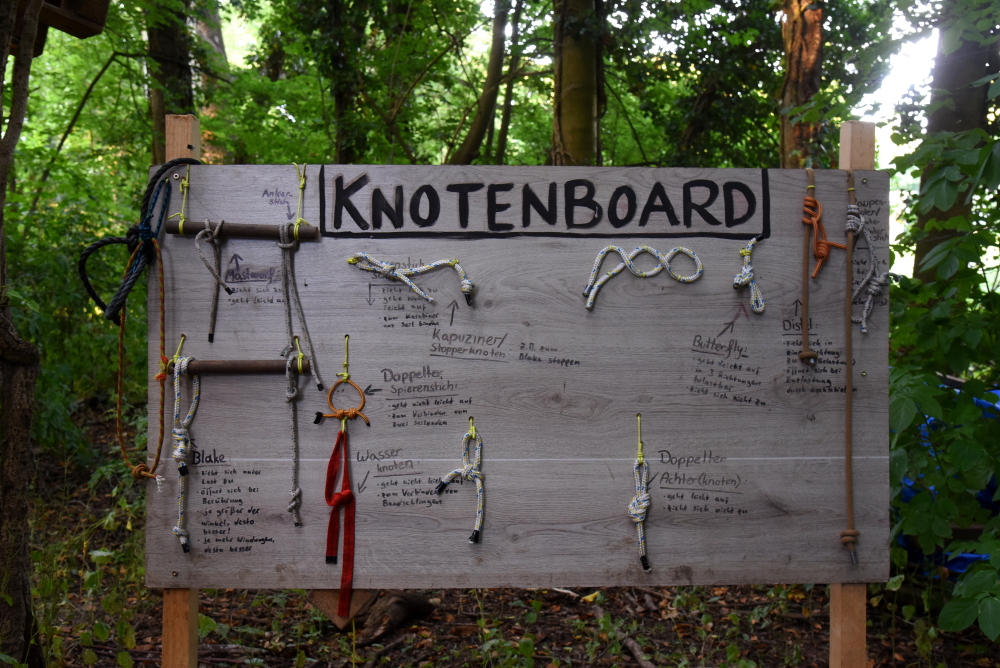 KNOTENBOARD
Anker
Stich
Mastwurf:
zieht sich zu
geht leicht auf
zum Karabiner
ans Seil binden
Kapuziner/
Stopperknoten: z.B. zum
Blake stoppen
Butterfly:
- geht leicht auf
- in 3 Richtungen
belastbar
- zieht sich nicht zu
Distel:
Doppelter
Spierenstich:
- geht nicht leicht auf
- zum Verbinden von
zwei Seilenden
Wasser
knoten:
- geht nicht
- zum Verbinden
Bandschlingen
Doppelter
Achter(knoten)
- geht leicht auf
- zieht sich nicht zu
Blake:
- zieht sich unter
Last zu
- öffnet sich bei
Berührung
- je größer der
winkel, desto
besser!
- je mehr Windungen,
desto besser